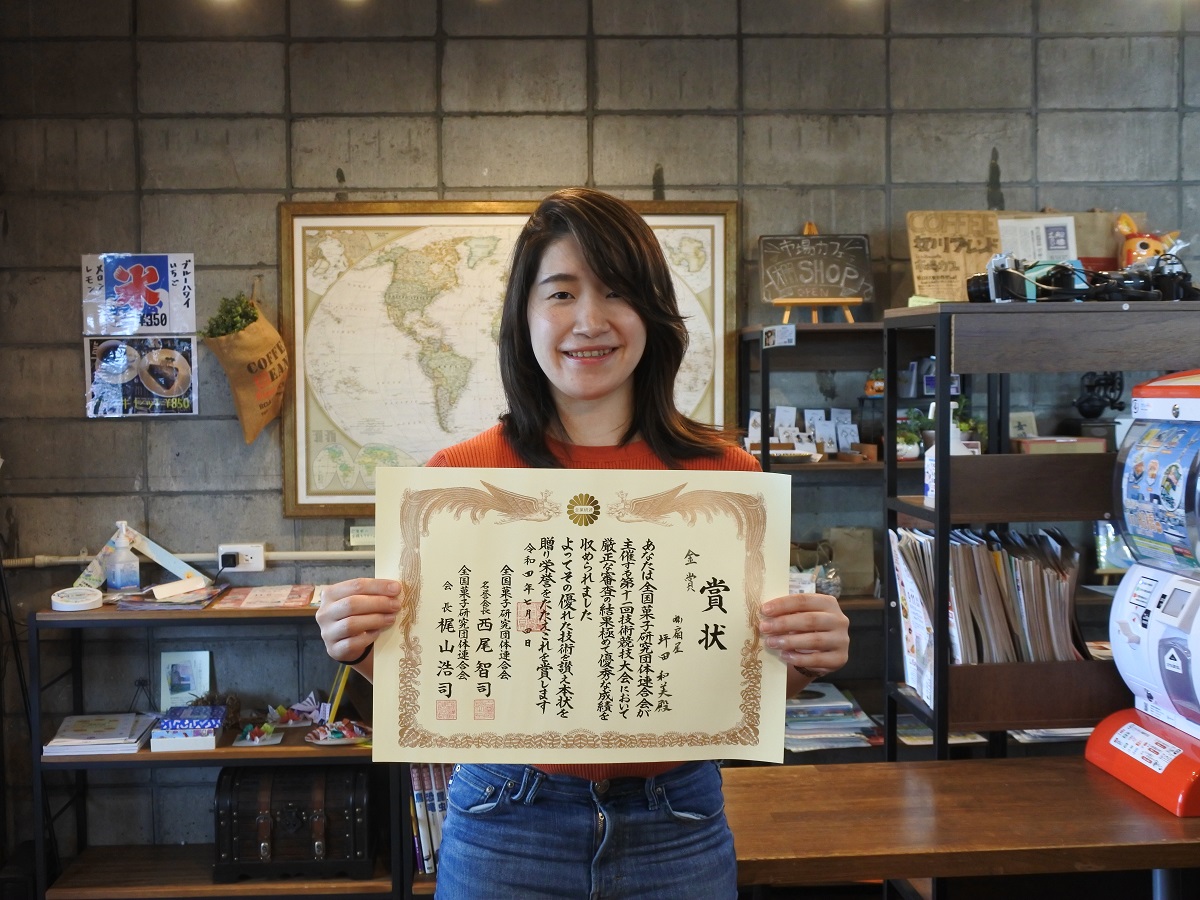 賞状
金賞
㈱扇屋
坪田 和美殿
あなたは全国菓子研究団体連合会が
主催する第十二回技術競技大会において
厳正な審査の結果極めて優秀な成績を
収められました
よってその優れた技術を讃え本状を
贈り栄誉をたたえこれを賞します
令和四年七月四日
全国菓子研究団体連合会
名誉会長 西尾智司
全国菓子研究団体連合会
会長 梶山浩司
ブルーハワイ
いちご
氷
メロン
レモン
¥350
¥850
COFFEE
市場カフェ
SHOP
COFFEE